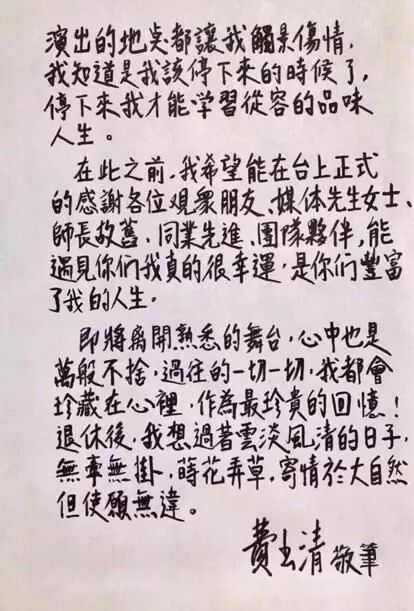 演出的地点都讓我觸景傷情,
我知道是我該停下來的時候了,
停下來我才能学習從容的品味
人生。
在此之前,我希望能在台上正式
的感謝各位观衆朋友、媒体先生女士、
師長故舊、同業先進、團隊夥伴,能
遇見你们我真的很幸運,是你们豐富
了我的人生。
即將离開熟悉的舞台,心中也是
萬般不捨,過往的一切一切,我都會
珍藏在心裡,作為最珍貴的回憶!
退休後,我想過著雲淡風清的日子,
無牽無掛,蒔花弄草,寄情於大自然
但使願無違。
費玉清 敬筆